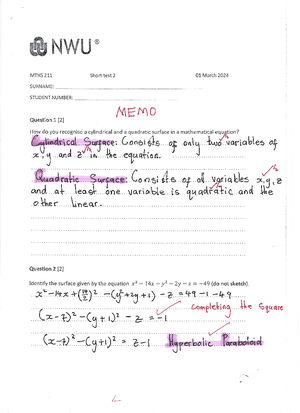 NWU®
MTHS 211 Short test 2 01 March 2024
SURNAME:
STUDENT NUMBER:
MEMO
Question 1 [2]
How do you recognise a cylindrical and a quadratic surface in a mathematical equation?
Cylindrical Surface: Consists of only two variables of
x, y and z in the equation.
Quadratic Surface: Consists of all variables x,y,z
and at least one variable is quadratic and the
other linear.
Question 2 [2]
Identify the surface given by the equation x² − 14x − y² − 2y − z = −49 (do not sketch).
x² − 14x + (14/2)² − (y² + 2y + 1) − z = 49 − 1 − 49
completing the square
(x − 7)² − (y + 1)² − z = −1
(x − 7)² − (y + 1)² = z − 1 Hyperbolic Paraboloid